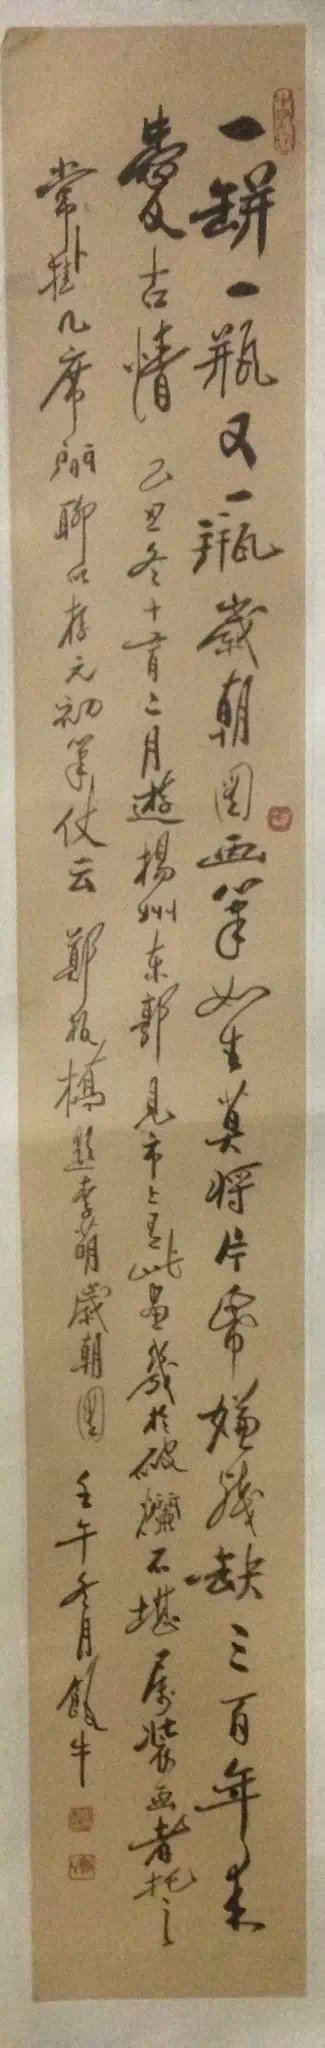 一缾一瓶又一瓶歲朝圖画筆如生莫将片帋嫌残缺三百年来
愛古情 乙丑冬十一月二月遊揚州東郭見市上有此畫幾於破爛不堪属裝画者托之
常掛几席间聊以存元初筆仗云 鄭板橋題李萌歲朝圖 壬午冬月飯牛